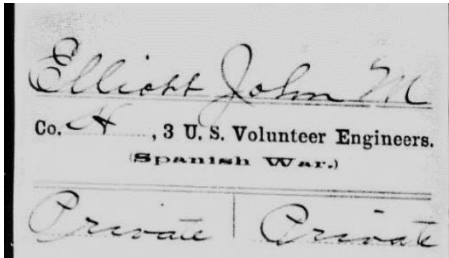 Elliott John M
Co. H, 3 U. S. Volunteer Engineers.
(Spanish War.)
Private | Private